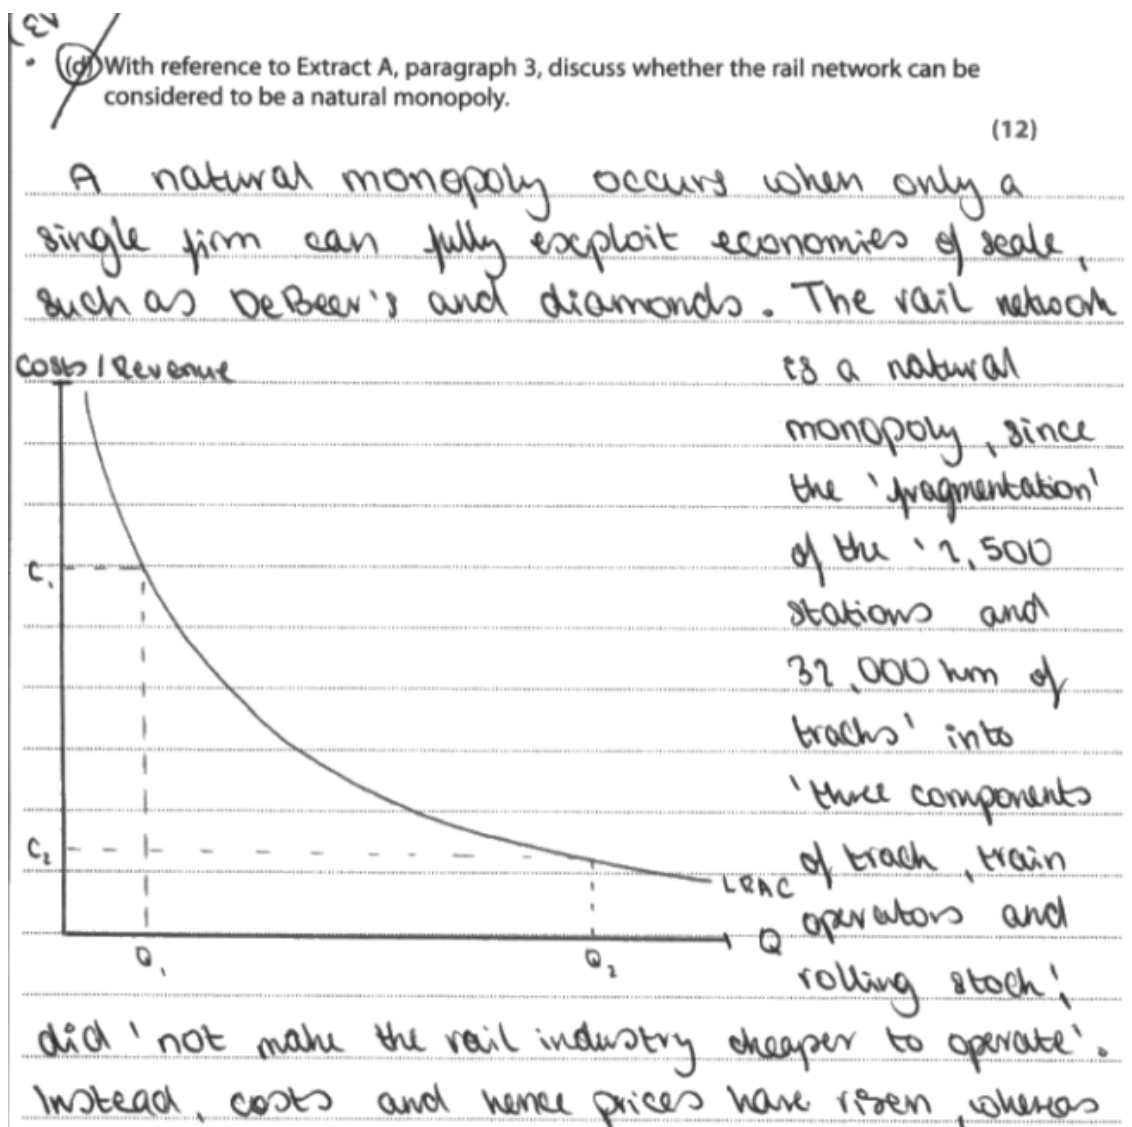 (d) With reference to Extract A, paragraph 3, discuss whether the rail network can be
considered to be a natural monopoly.
(12)
A natural monopoly occurs when only a
single firm can fully exploit economies of scale,
such as DeBeer's and diamonds. The rail network
Costs / Revenue
is a natural
monopoly, since
the 'fragmentation'
of the '2,500
stations and
32,000 km of
tracks' into
'three components
of track, train
operators and
rolling stock',
C₁
C₂
LRAC
Q
Q₁
Q₂
did 'not make the rail industry cheaper to operate'.
Instead, costs and hence prices have risen, whereas